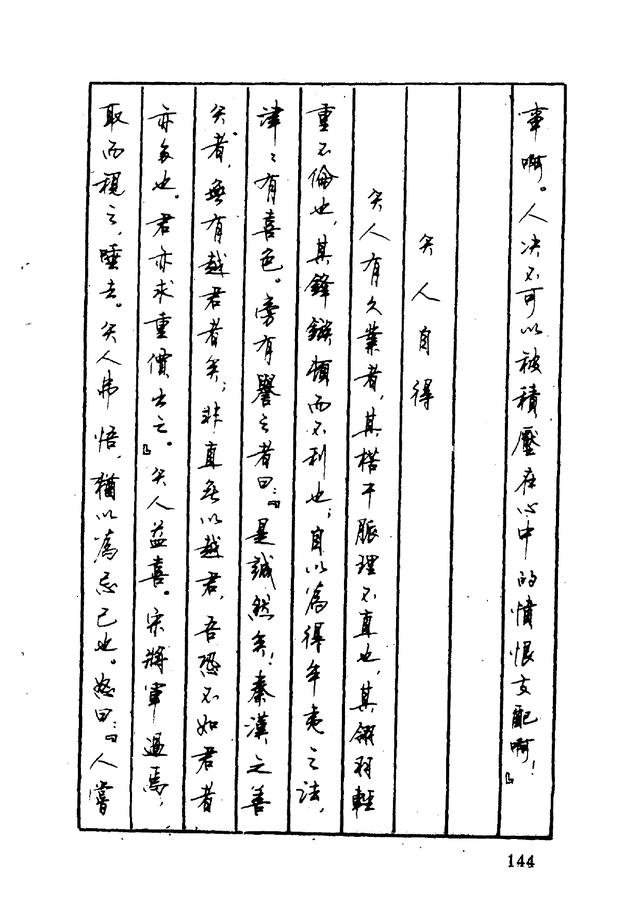 事啊。人决不可以被積壓在心中的憤恨支配啊!』
矢人自得
矢人有久業者,其楛干脈理不直也,其翎羽輕
重不倫也,其鋒鏃頓而不利也;自以為得牟夷之法,
津〻有喜色。旁有譽之者曰:『是誠然矣!秦漢之善
矢者,無有越君者矣;非直無以越君,吾恐不如君者
亦多也。君亦求重價出之。』矢人益喜。宋將軍過焉,
取而視之,唾去。矢人弗悟,猶以為忌己也。怒曰:『人嘗
144